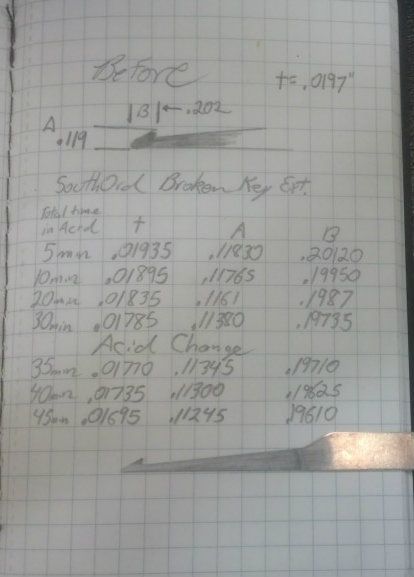 Before
t= .0197"
|B|← .202
A
.119
SouthOrd Broken Key Ext.
Total time
in Acid t A B
5min .01935 .11830 .20120
10min .01895 .11765 .19950
20min .01835 .1161 .1987
30min .01785 .11380 .19735
Acid Change
35min .01770 .11345 .19710
40min .01735 .11300 .19625
45min .01695 .11245 .19610